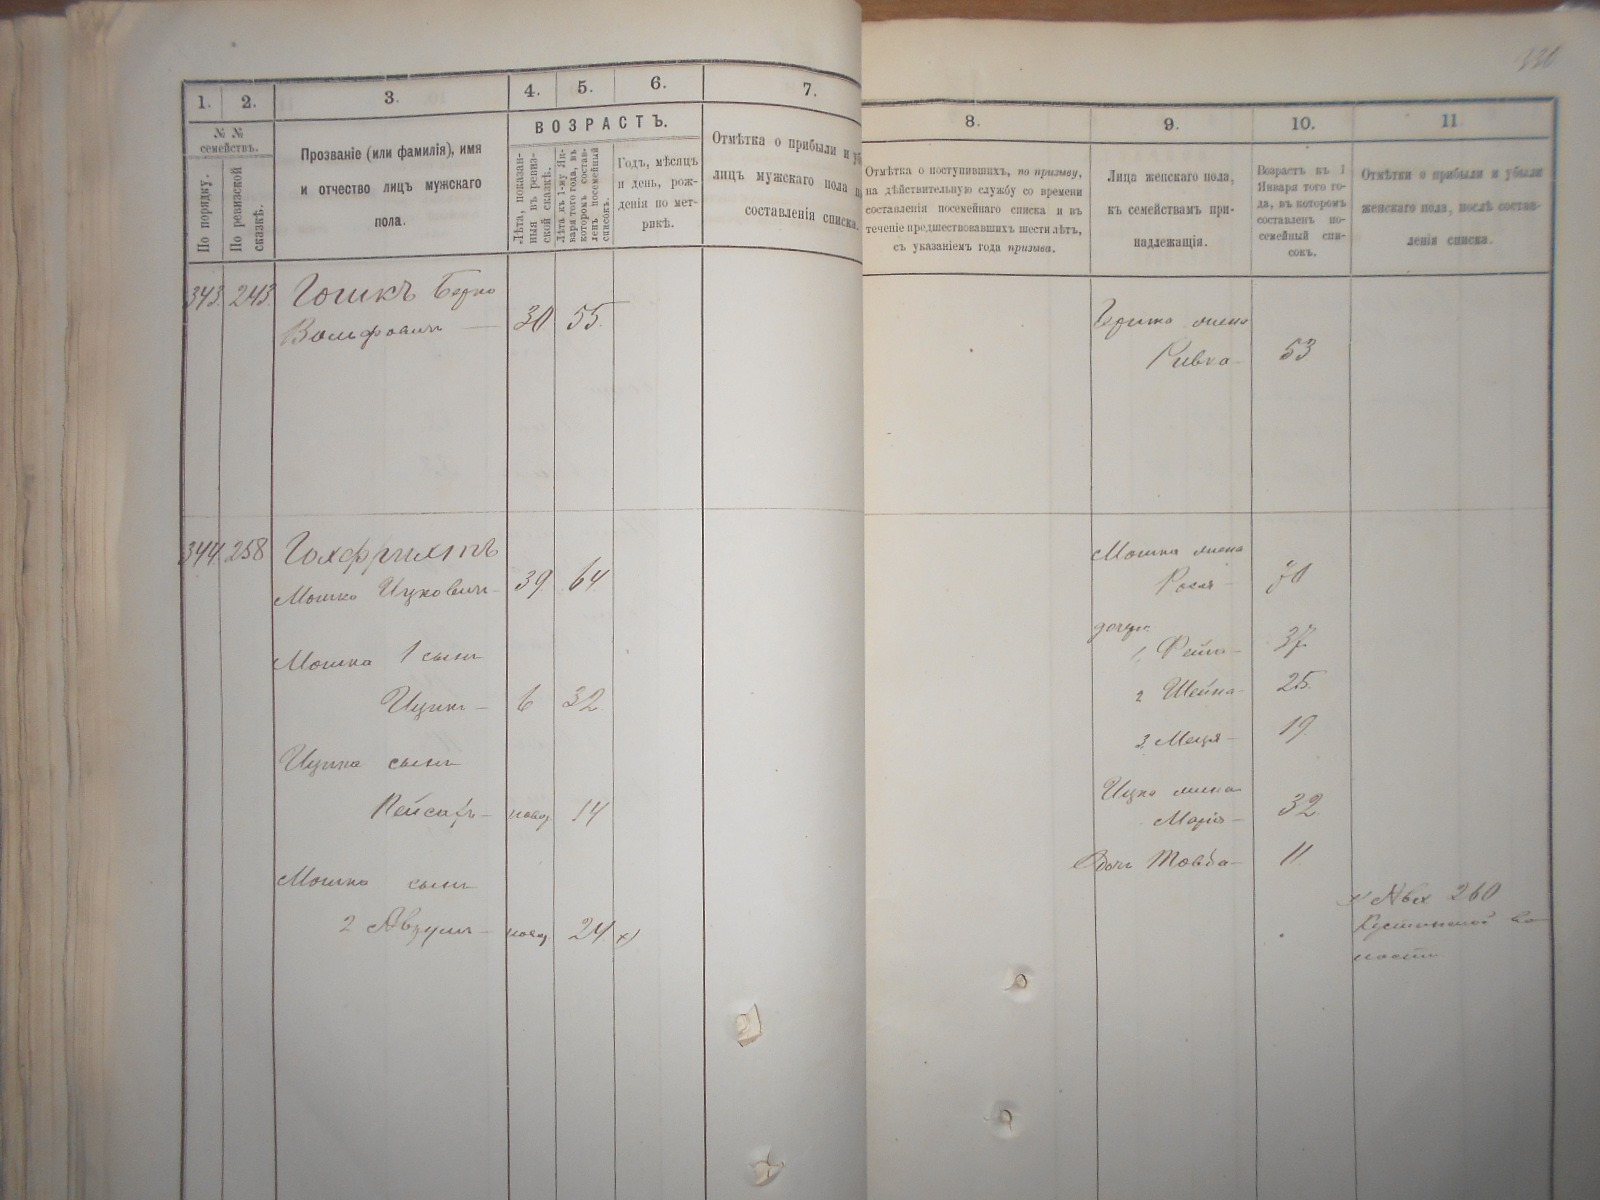 1. 2. 3. 4. 5. 6. 7.
№ №
семействъ.
По порядку.
По ревизской
сказкѣ.
Прозваніе (или фамилія), имя
и отчество лицъ мужскаго
пола.
ВОЗРАСТЪ.
Лѣта, показан-
ныя въ ревиз-
ской сказкѣ.
Лѣта къ 1-му Ян-
варя того года, въ
которомъ состав-
ленъ посемейный
списокъ.
Годъ, мѣсяцъ
и день, рож-
денія по мет-
рикѣ.
Отмѣтка о прибыли и
лицъ мужскаго пола
составленія списка.
343. 243. Гошкъ Берко
Вольфовичъ — 30 55.
344 258 Голфрихтъ
Мошко Ицковичъ — 39 64.
Мошка 1 сынъ
Ицикъ — 6 32
Ицика сынъ
Пейсахъ — 14
Мошка сынъ
2 Аврумъ — 24 х)
110
8. 9. 10. 11
Отмѣтка о поступившихъ, по призыву,
на дѣйствительную службу со времени
составленія посемейнаго списка и въ
теченіе предшествовавшихъ шести лѣтъ,
съ указаніемъ года призыва.
Лица женскаго пола,
къ семействамъ при-
надлежащія.
Возрастъ къ 1
Января того го-
да, въ которомъ
составленъ по-
семейный спи-
сокъ.
Отмѣтки о прибыли и убыли
женскаго пола, послѣ состав-
ленія списка.
Берка жена
Ривка — 53
Мошка жена
Рося —
дочери:
1, Фейга — 37
2 Шейна — 25.
3. — 19.
Ицка жена
Марія — 32.
Дочь Товба — 11.
260